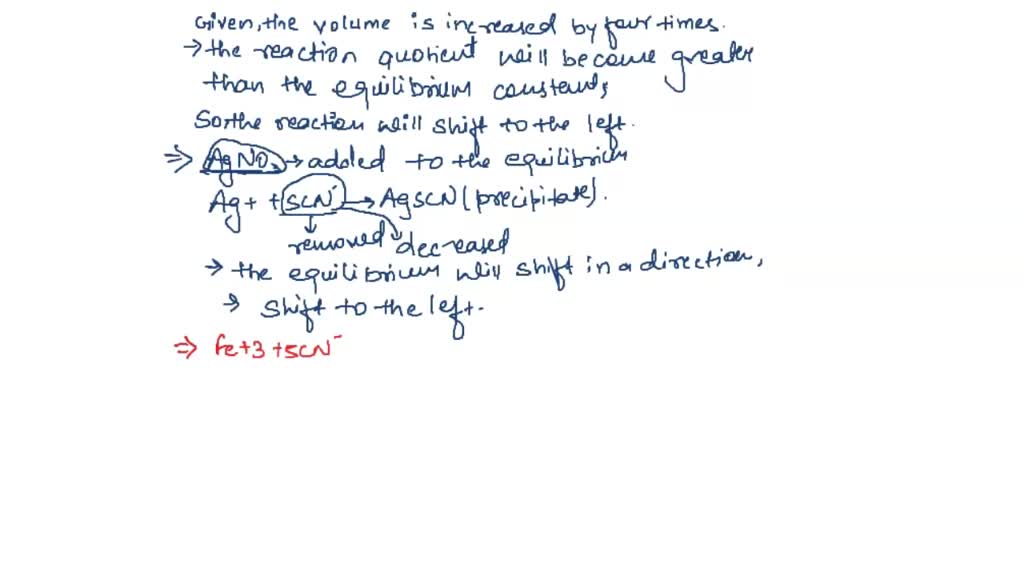 Given, the volume is increased by four times.
→ the reaction quotient will become greater
than the equilibrium constant,
So the reaction will shift to the left.
⇒ AgNO3 → added to the equilibrium
Ag+ + SCN- → AgSCN (precipitate).
removed decreased
→ the equilibrium will shift in a direction,
→ shift to the left.
⇒ Fe+3 + SCN-